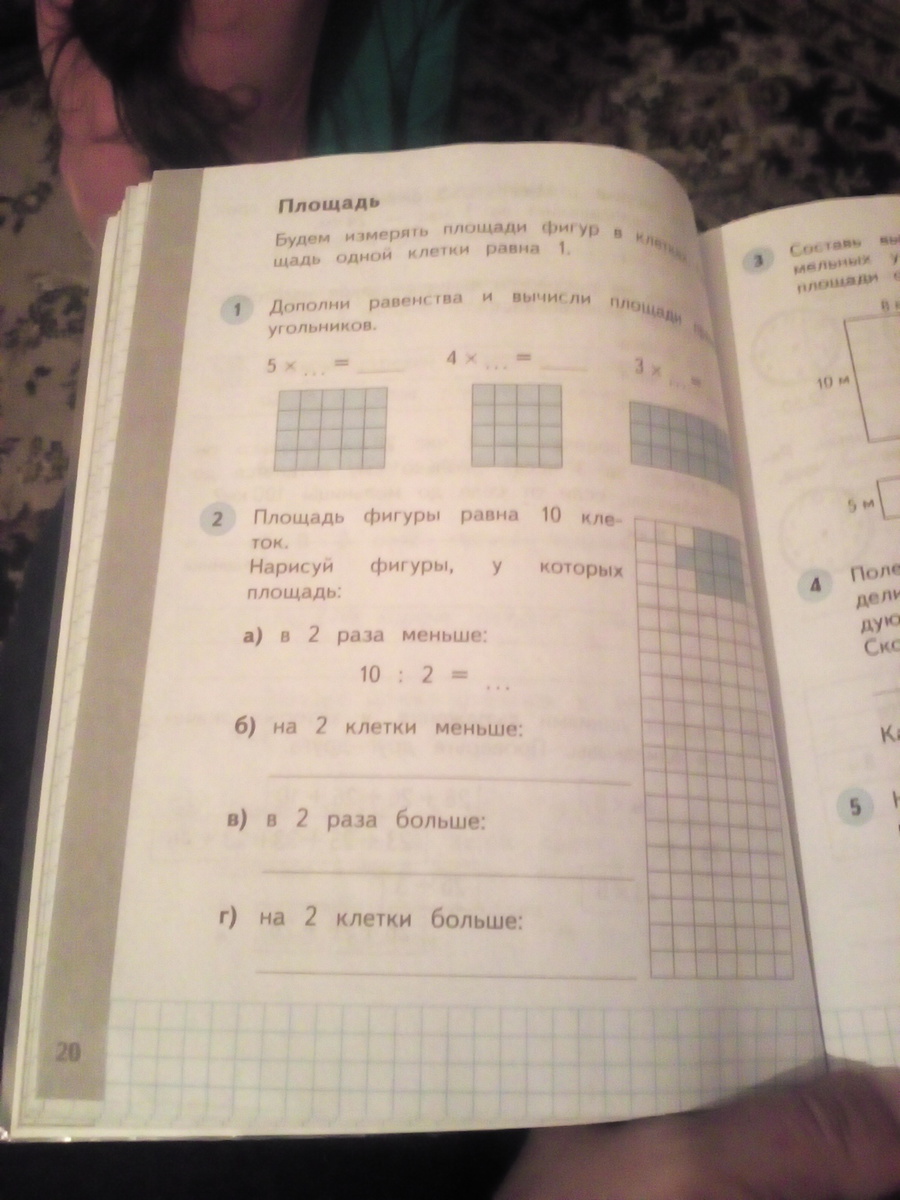 Площадь
Будем измерять площади фигур в
щадь одной клетки равна 1.
1 Дополни равенства и вычисли площади
угольников.
5 × ... = ____ 4 × ... = ____ 3 × ... =
2 Площадь фигуры равна 10 кле-
ток.
Нарисуй фигуры, у которых
площадь:
а) в 2 раза меньше:
10 : 2 = ...
б) на 2 клетки меньше:
в) в 2 раза больше:
г) на 2 клетки больше:
20
3 Составь
мельных
площади
10 м
5 м
4 Поле
дели
дую
Ско
Ка
5